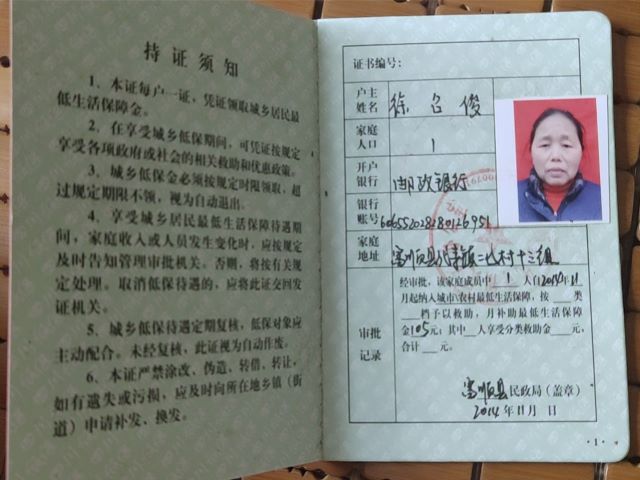 持证须知
1、本证每户一证，凭证领取城乡居民最
低生活保障金。
2、在享受城乡低保期间，可凭证按规定
享受各项政府或社会的相关救助和优惠政策。
3、城乡低保金必须按规定时限领取，超
过规定期限不领，视为自动退出。
4、享受城乡居民最低生活保障待遇期
间，家庭收入或人员发生变化时，应按规定
及时告知管理审批机关。否则，将按有关规
定处理。取消低保待遇的，应将此证交回发
证机关。
5、城乡低保待遇定期复核，低保对象应
主动配合。未经复核，此证视为自动作废。
6、本证严禁涂改、伪造、转借、转让，
如有遗失或污损，应及时向所在地乡镇（街
道）申请补发、换发。
证书编号：
户主
姓名 徐召俊
家庭
人口 1
开户
银行 邮政银行
银行
账号 606552028280126951
家庭
地址 富顺县代寺镇 村十三组
经审批，该家庭成员中 1 人自2014年11
月起纳入城市\农村最低生活保障，按 类
档予以救助，月补助最低生活保障
金105元；其中 人享受分类救助金 元，
合计 元。
审批
记录
富顺县民政局（盖章）
2014年11月 日
·1·